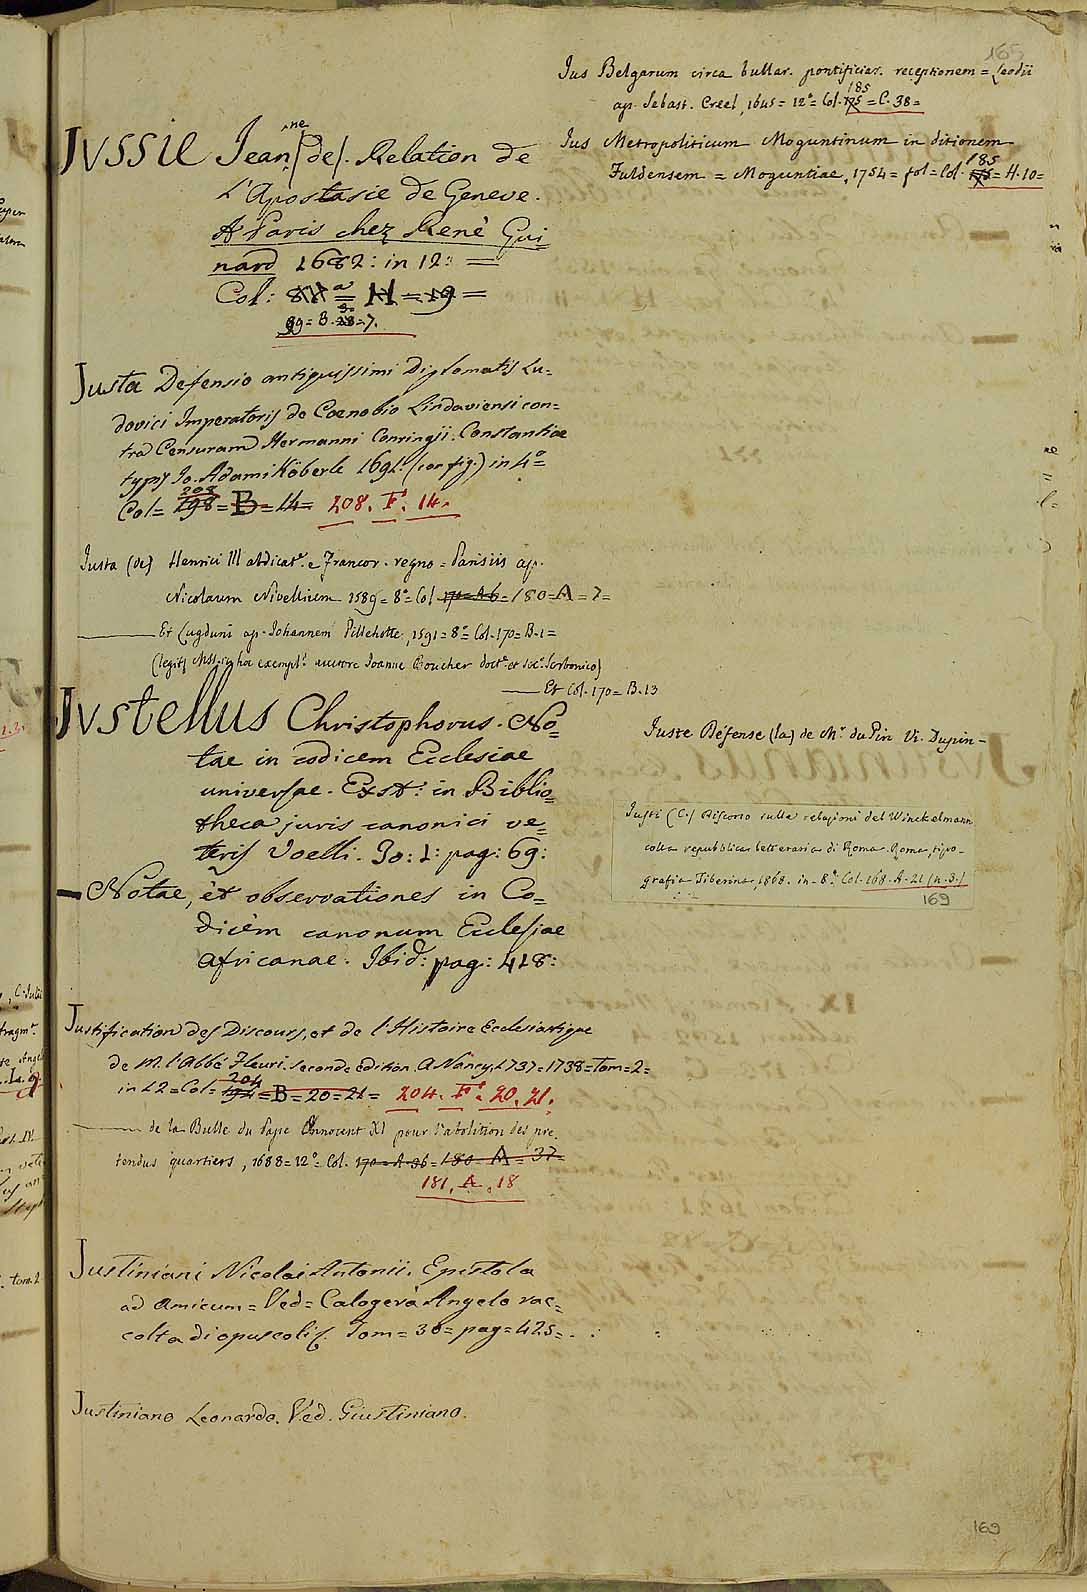 165
Jus Belgarum circa bullar. pontificiar. receptionem = Leodii
ap. Sebast. Creel, 1645 = 12° = Col. 175 185 = C. 38 =
Jus Metropoliticum Moguntinum in ditionem
Fuldensem = Moguntiae, 1754 = fol = Col. 175 185 = H. 10 =
JVSSIE Jeanne (de). Relation de
L'Apostasie de Geneve.
A Paris chez René Gui-
nard 1682: in 12: =
Col: = H = 19 =
99 = 8. = 7.
Justa Defensio antiquissimi Diplomatis Lu=
dovici Imperatoris de Coenobio Lindaviensi con=
tra Censuram Hermanni Conringii. Constantiae
typis Jo. Adami Köberle 1691. (con fig.) in 4° =
Col = 198 208 = B = 14 = 208. F. 14.
Justa (de) Henrici III abdicat.e e Francor. regno = Parisiis ap.
Nicolaum Nivellium 1589 = 8° = Col. 170 = A 6 = 180 = A = 7 =
Et Lugduni ap. Johannem Pillehotte, 1591 = 8° = Col. 170 = B. 1 =
(legit MSS. in hoc exempl. auctore Joanne Boucher doct.e et soc.o Sorbonico)
Et Col. 170 = B. 13
JVStellus Christophorus. No=
tae in codicem Ecclesiae
universae. Exst: in Biblio=
theca juris canonici ve=
teris Voelli. To: 1: pag: 69:
Juste Défense (la) de Mr. du Pin Vi. Dupin -
Justi (C.) Discorso sulle relazioni del Winckelmann
colla repubblica letteraria di Roma. Roma, tipo-
grafia Tiberina, 1868. in-8° Col. 168. A. 21 (n. 3.)
169
— Notae, et observationes in Co=
dicem canonum Ecclesiae
Africanae. Ibid: pag: 418:
Justification des Discours, et de l'Histoire Ecclesiastique
de M. l'Abbé Fleuri. Seconde edition. A Nancy. 1737 = 1738 = Tom = 2 =
in 12 = Col = 194 204 = B = 20 = 21 = 204. F. 20. 21.
— de la Bulle du Pape Innocent XI pour l'abolition des pre-
tendus quartiers, 1688 = 12° = Col. 170 = A. 36 = 180 = A = 37 =
181. A. 18
Justiniani Nicolai Antonii. Epistola
ad Amicum = Ved = Calogerà Angelo rac=
colta di opuscoli. Tom = 30 = pag = 425 =
Justiniano Leonardo. Ved. Giustiniano.
169